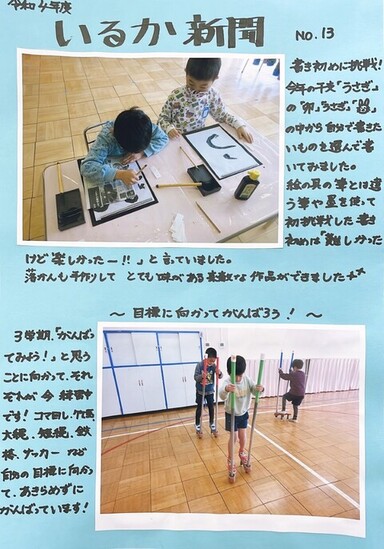 令和4年度
いるか新聞
NO.13
書き初めに挑戦!
今年の干支「うさぎ」
の「卯」「うさぎ」「🐰」
の中から自分で書きた
いものを選んで書
いてみました。
絵の具の筆とは違
う筆や墨を使って
初挑戦した書き
初めは「難しかった
けど楽しかったー!!」と言っていました。
落かんも手作りして とても味がある素敵な作品ができました
~ 目標に向かってがんばろう! ~
3学期、「がんばっ
てみよう!」と思う
ことに向かって、それ
ぞれが今 練習中
です! コマ回し、竹馬
大縄、短縄、鉄
棒、サッカー など
自分の目標に向かっ
て、あきらめずに
がんばっています!